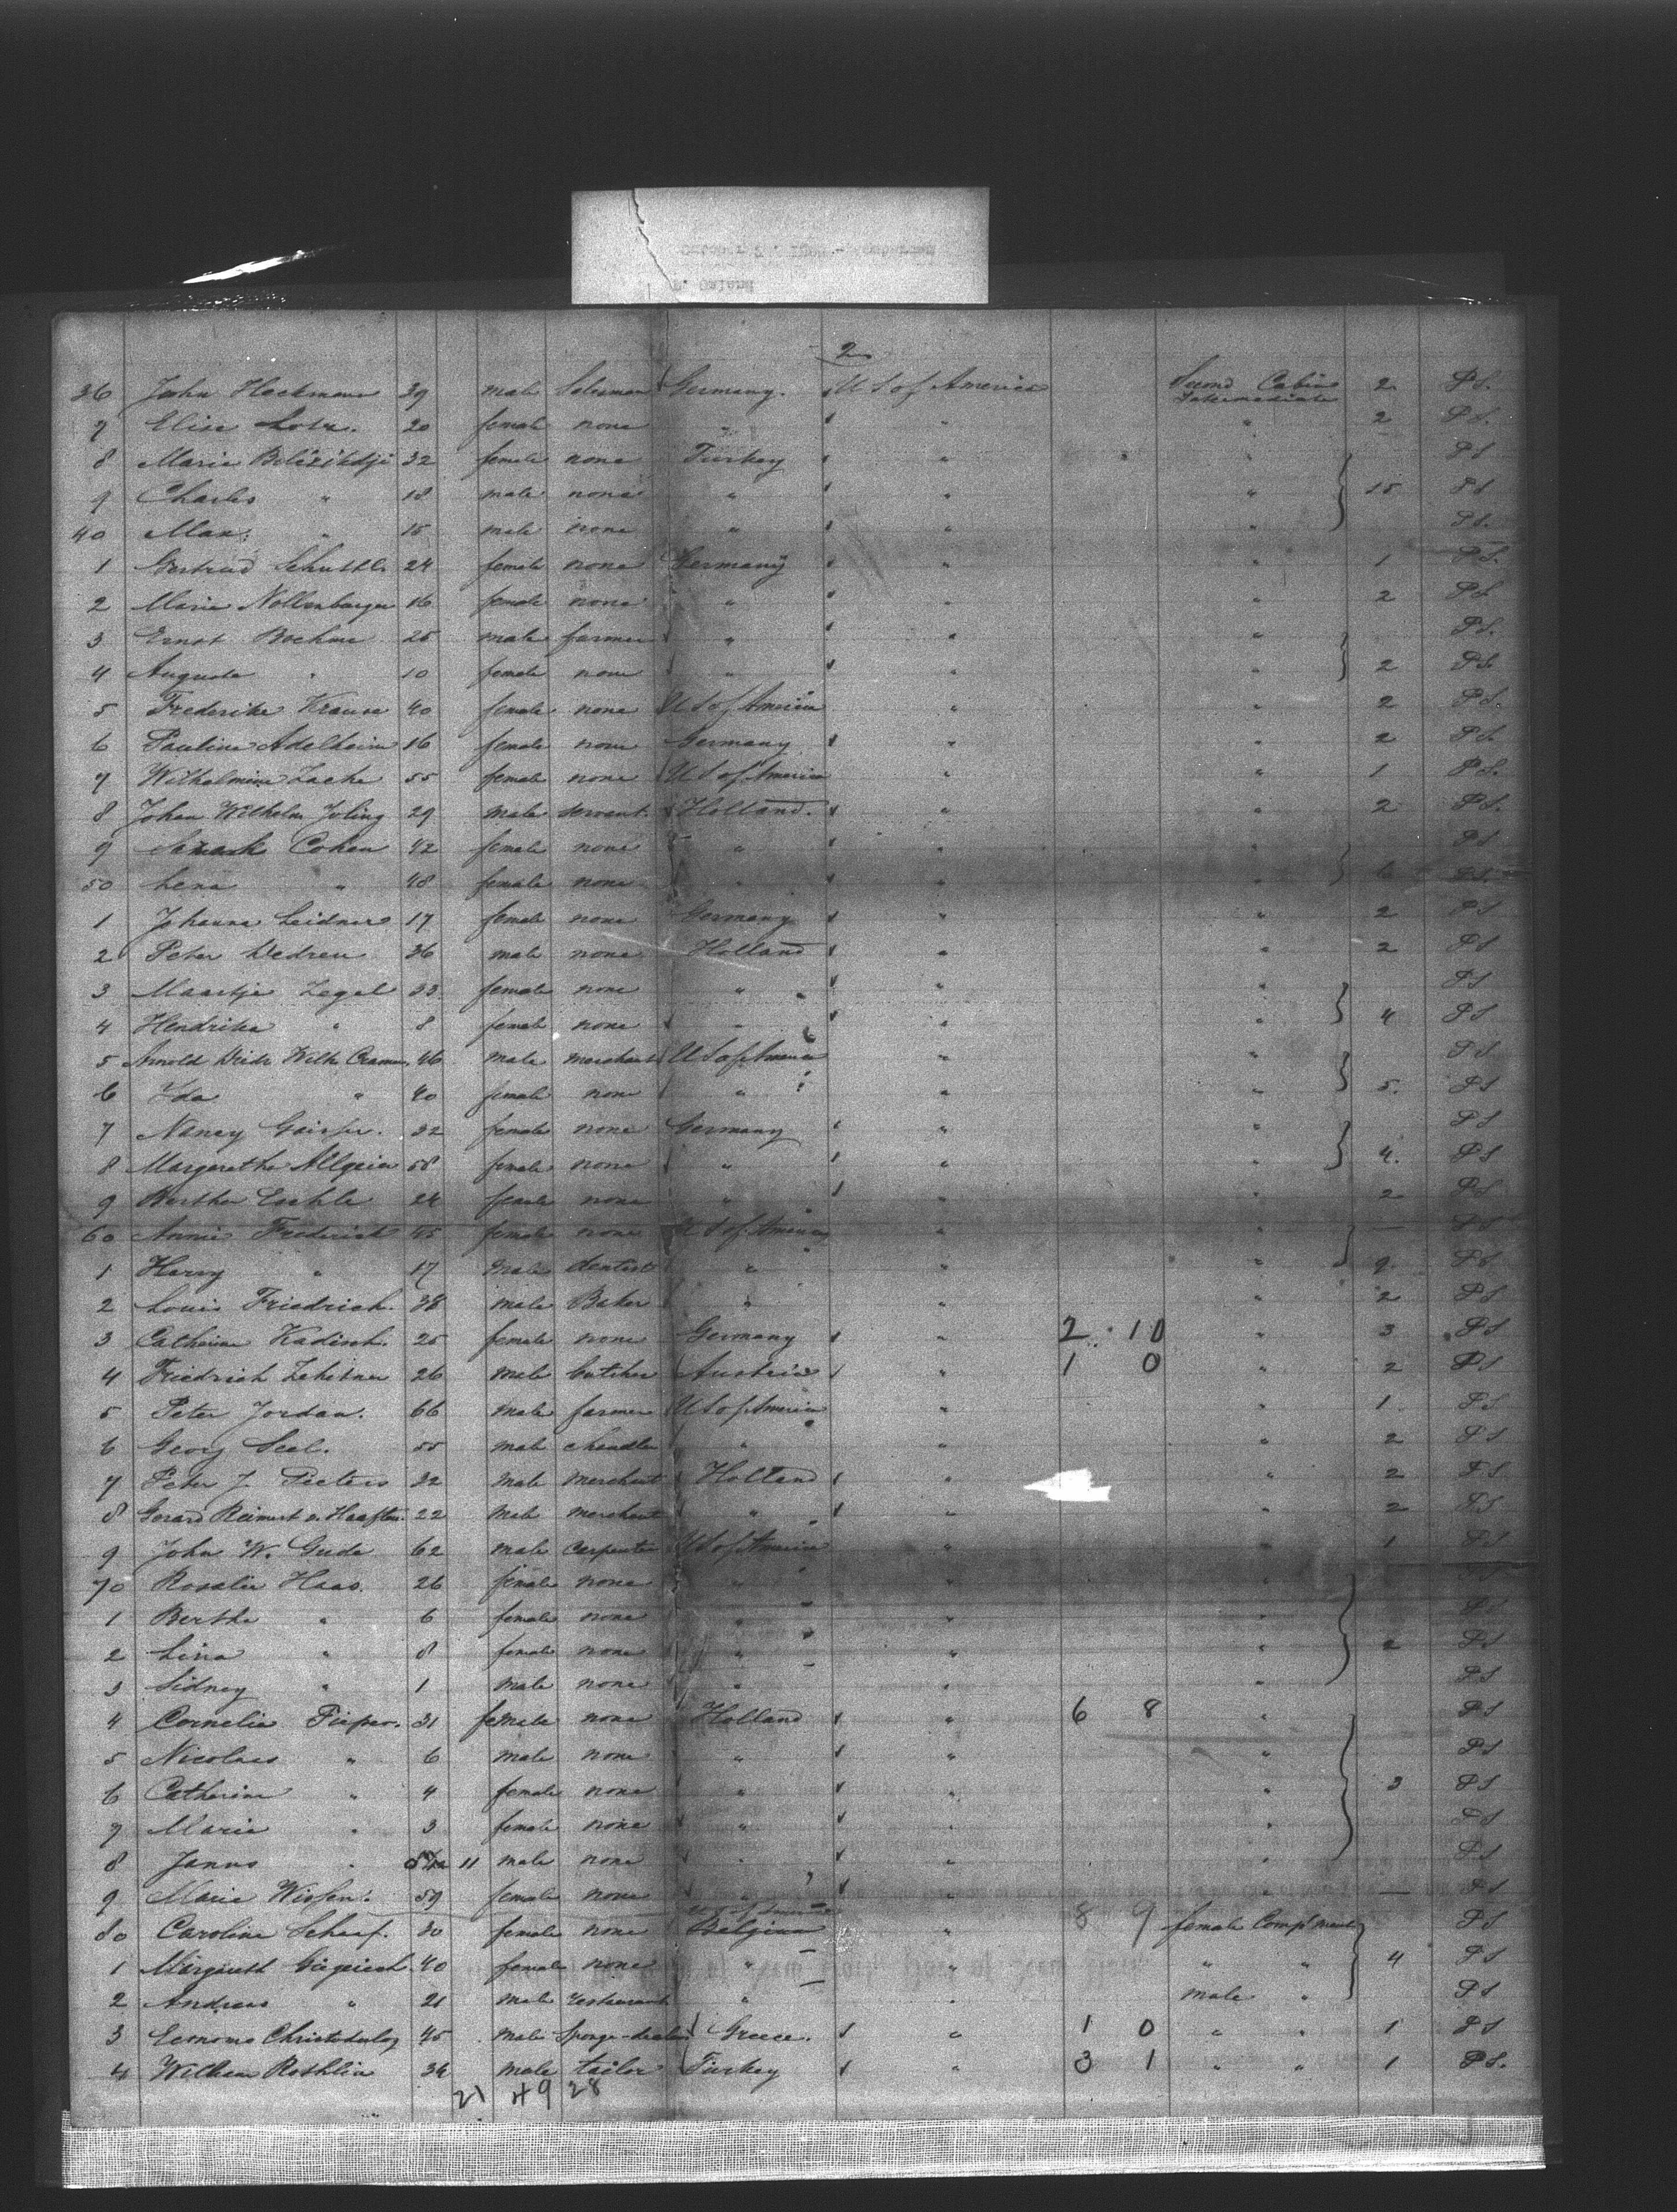 2
36 John Heckmann 39 male Salesman Germany. U S of America Second Cabin Intermediate 2 PS.
7 Elise Lotz. 20 female none " " " 2 PS.
8 Marie 32 female none Turkey " " PS
9 Charles " 18 male none " " " 15 PS
40 Max: " 15 male none " " " PS.
1 Gertrud 24 female none Germany " " 1 PS.
2 Marie Nollenberger 16 female none " " " 2 PS
3 Ernst Boehme 25 male farmer " " " PS.
4 Auguste " 10 female none " " " 2 PS.
5 Frederike Krause 40 female none U S of America " " 2 PS.
6 Pauline Adelheim 16 female none Germany " " 2 PS.
7 Wilhelmine Zacke 55 female none U S of America " " 1 PS.
8 Johan Wilhelm Joling 29 male servant. Holland. " " 2 PS.
9 Cohen 42 female none " " " PS
50 Lena " 48 female none " " " 6 PS.
1 Johanna Leidner 17 female none Germany " " 2 PS
2 Peter Dedreu 36 male none Holland " " 2 PS
3 Maartje Zegel 33 female none " " " PS
4 Hendrika " 8 female none " " " 4 PS
5 Arnold 46 male merchant U S of America " " PS
6 Ida " 40 female none " " " 5. PS
7 Nancy 32 female none Germany " " PS
8 Margaretha Allgeier 58 female none " " " 4. PS
9 Bertha Eschle 24 female none " " " 2 PS
60 Annie Frederick 45 female none U S of America " " — PS
1 Harry " 17 male dentist " " " 9. PS
2 Louis Friedrich. 38 male Baker " " " 2 PS
3 Catherine Kadisch. 25 female none Germany " 2 10 " 3 PS
4 Friedrich 26 male butcher Austria " 1 0 " 2 PS
5 Peter Jordan. 66 male farmer U S of America " " 1 PS
6 Georg Seel. 55 male chandler " " " 2 PS
7 Peter J. Pieters 32 male merchant Holland " " 2 PS
8 Gerard Reinert v. Haaften. 22 male merchant " " " 2 PS
9 John W. Gude 62 male carpenter U S of America " " 1 PS
70 Rosalie Haas. 26 female none " " " PS
1 Bertha " 6 female none " " " PS
2 Lina " 8 female none " " " 2 PS
3 Sidney " 1 male none " " " PS
4 Cornelia Pieper. 31 female none Holland " 6 8 " PS
5 Nicolaas " 6 male none " " " PS
6 Catherine " 4 female none " " " 3 PS
7 Marie " 3 female none " " " PS
8 Janus " 11 male none " " " PS
9 Marie 59 female none " " " — PS
80 Caroline Scharf. 30 female none Belgium " 8 9 female Comp'ment PS
1 Margareth 40 female none " " " " 4 PS
2 Andreas " 21 male restaurant " " male " PS
3 Economo Christodulos 45 male Sponge-dealer Greece. " 1 0 " " 1 PS
4 Wilhem Rothlin 34 male tailor Turkey " 3 1 " " 1 PS.
21 49 28